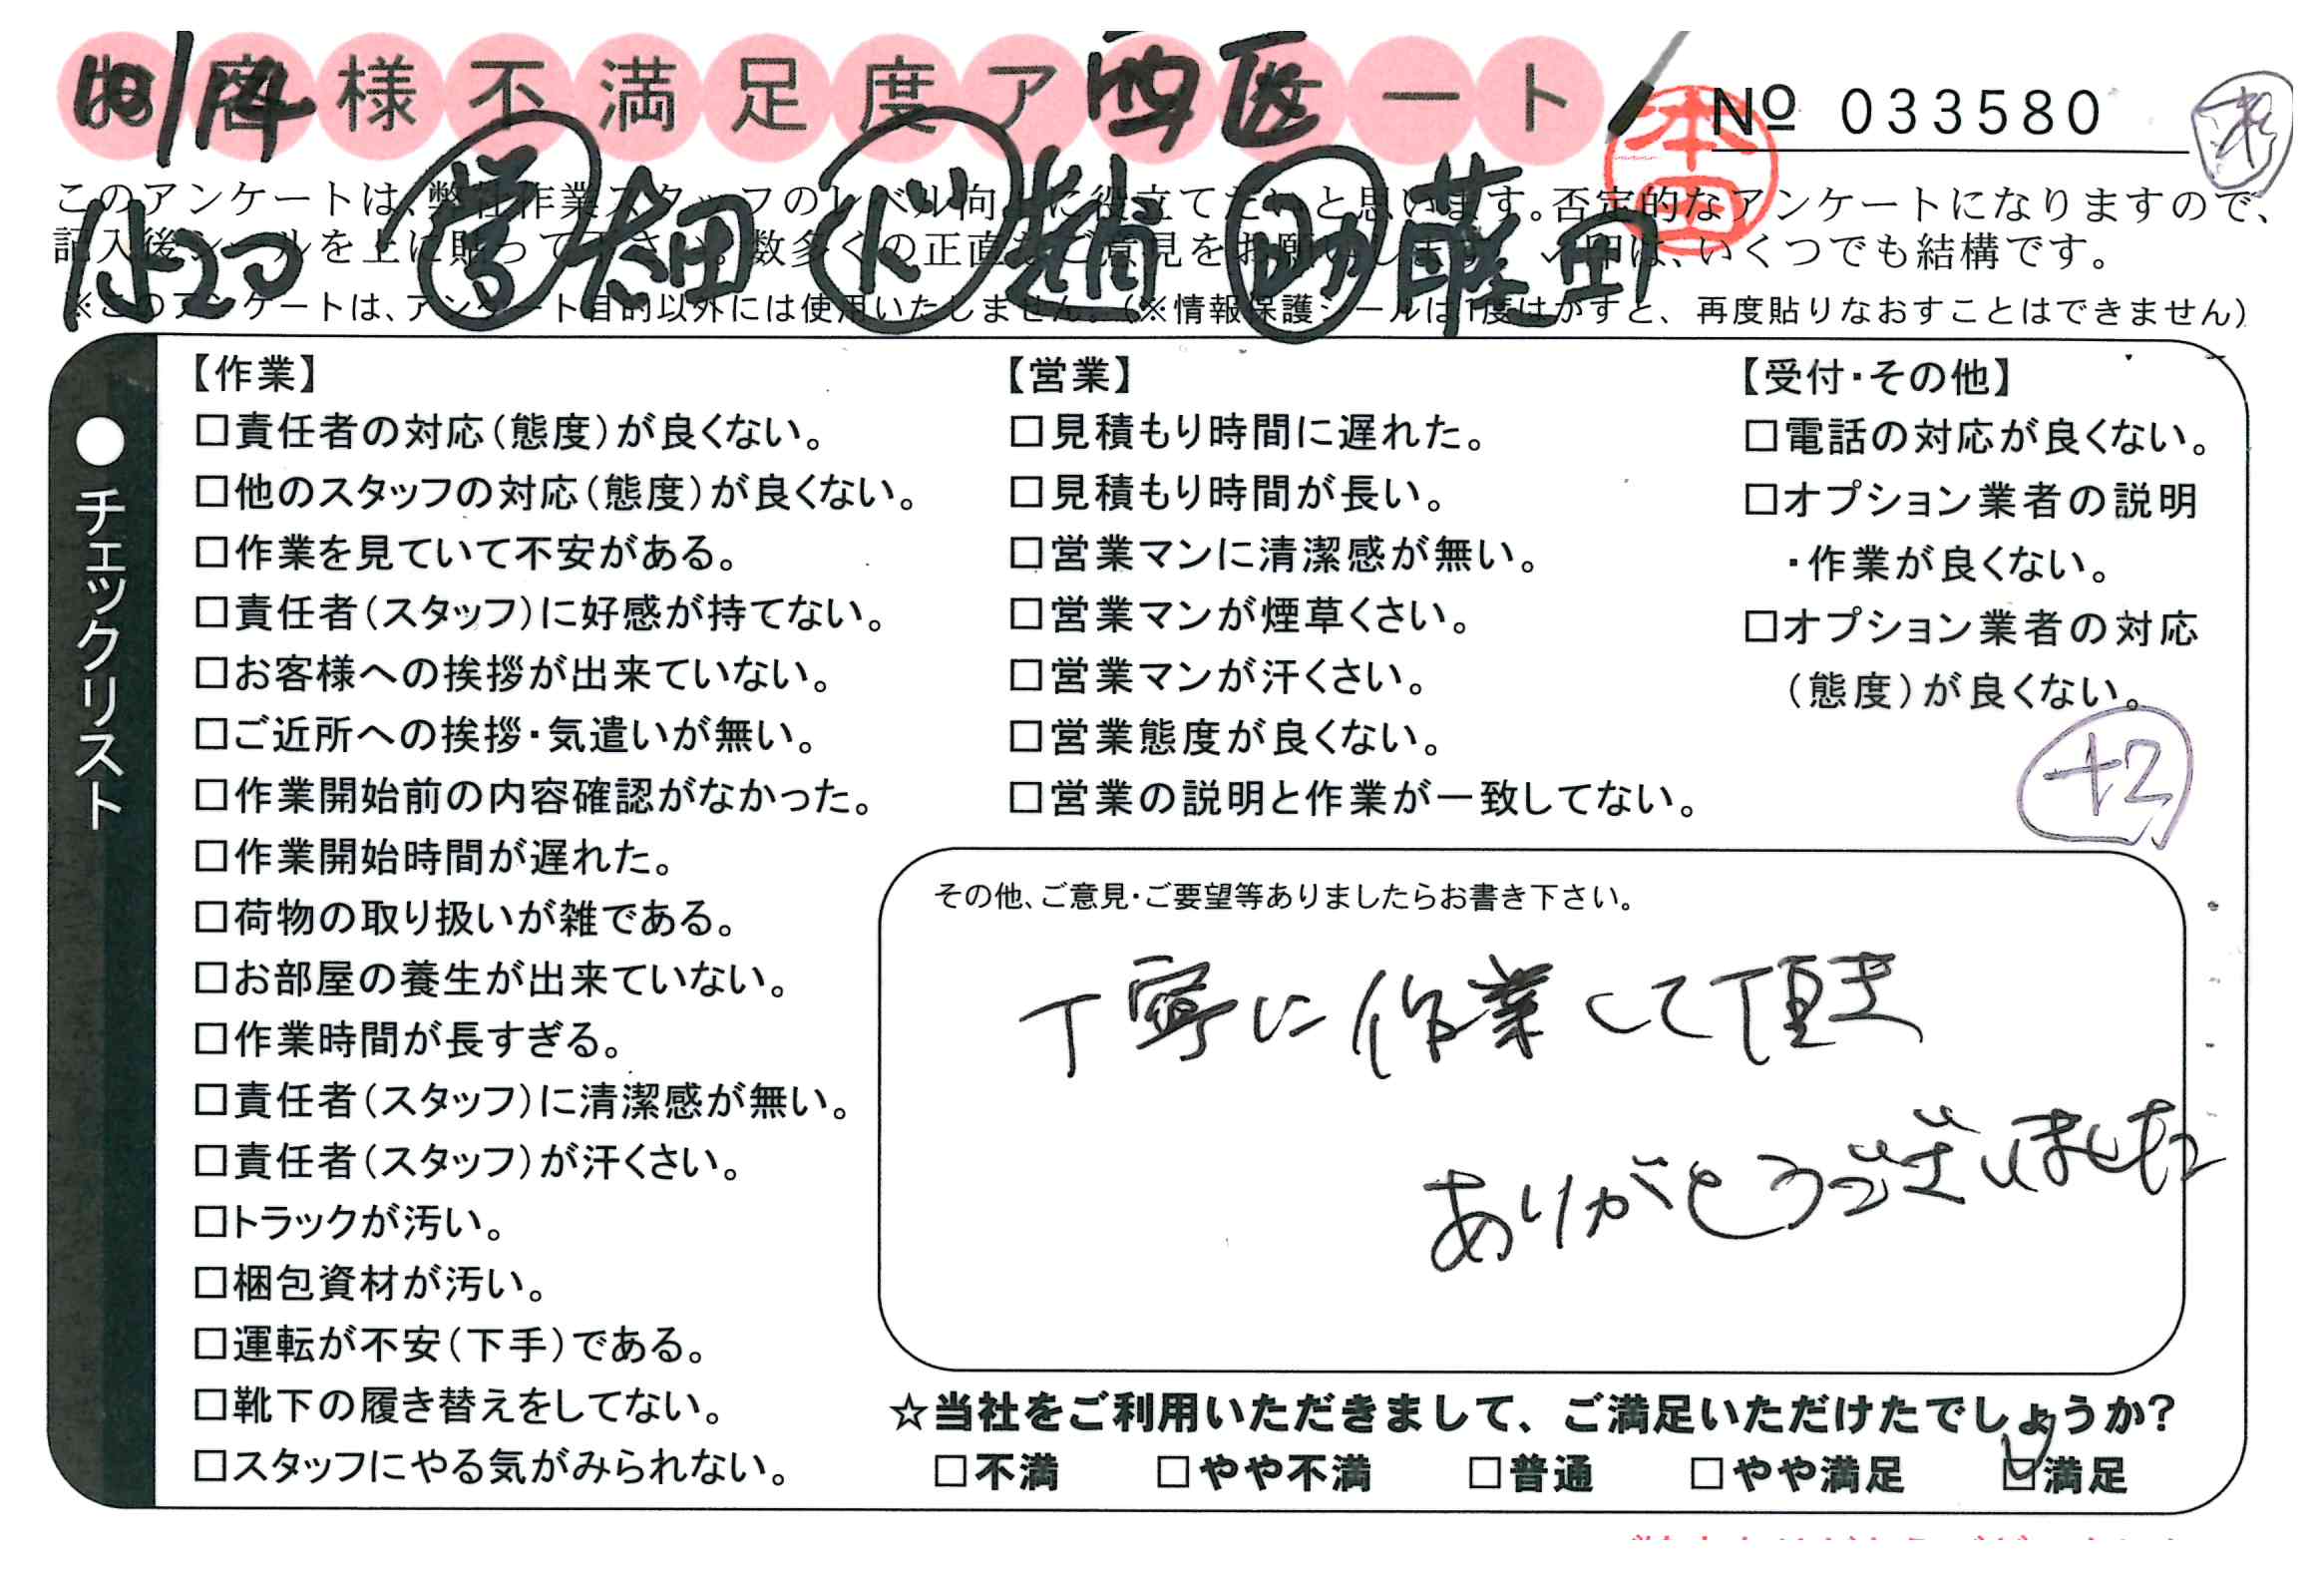 お客様不満足度アンケート
10/14
西医
№ 033580
本田
このアンケートは、弊社作業スタッフのレベル向上に役立てたいと思います。否定的なアンケートになりますので、
記入後シールを上に貼って下さい。数多くの正直なご意見をお願いします。✓印は、いくつでも結構です。
営 畑 ド 助 藤田
※このアンケートは、アンケート目的以外には使用いたしません。（※情報保護シールは1度はがすと、再度貼りなおすことはできません）
●チェックリスト
【作業】
□責任者の対応（態度）が良くない。
□他のスタッフの対応（態度）が良くない。
□作業を見ていて不安がある。
□責任者（スタッフ）に好感が持てない。
□お客様への挨拶が出来ていない。
□ご近所への挨拶・気遣いが無い。
□作業開始前の内容確認がなかった。
□作業開始時間が遅れた。
□荷物の取り扱いが雑である。
□お部屋の養生が出来ていない。
□作業時間が長すぎる。
□責任者（スタッフ）に清潔感が無い。
□責任者（スタッフ）が汗くさい。
□トラックが汚い。
□梱包資材が汚い。
□運転が不安（下手）である。
□靴下の履き替えをしてない。
□スタッフにやる気がみられない。
【営業】
□見積もり時間に遅れた。
□見積もり時間が長い。
□営業マンに清潔感が無い。
□営業マンが煙草くさい。
□営業マンが汗くさい。
□営業態度が良くない。
□営業の説明と作業が一致してない。
【受付・その他】
□電話の対応が良くない。
□オプション業者の説明
・作業が良くない。
□オプション業者の対応
（態度）が良くない。
+2
その他、ご意見・ご要望等ありましたらお書き下さい。
丁寧に作業して頂き
ありがとうございました
☆当社をご利用いただきまして、ご満足いただけたでしょうか？
□不満 □やや不満 □普通 □やや満足 ☑満足